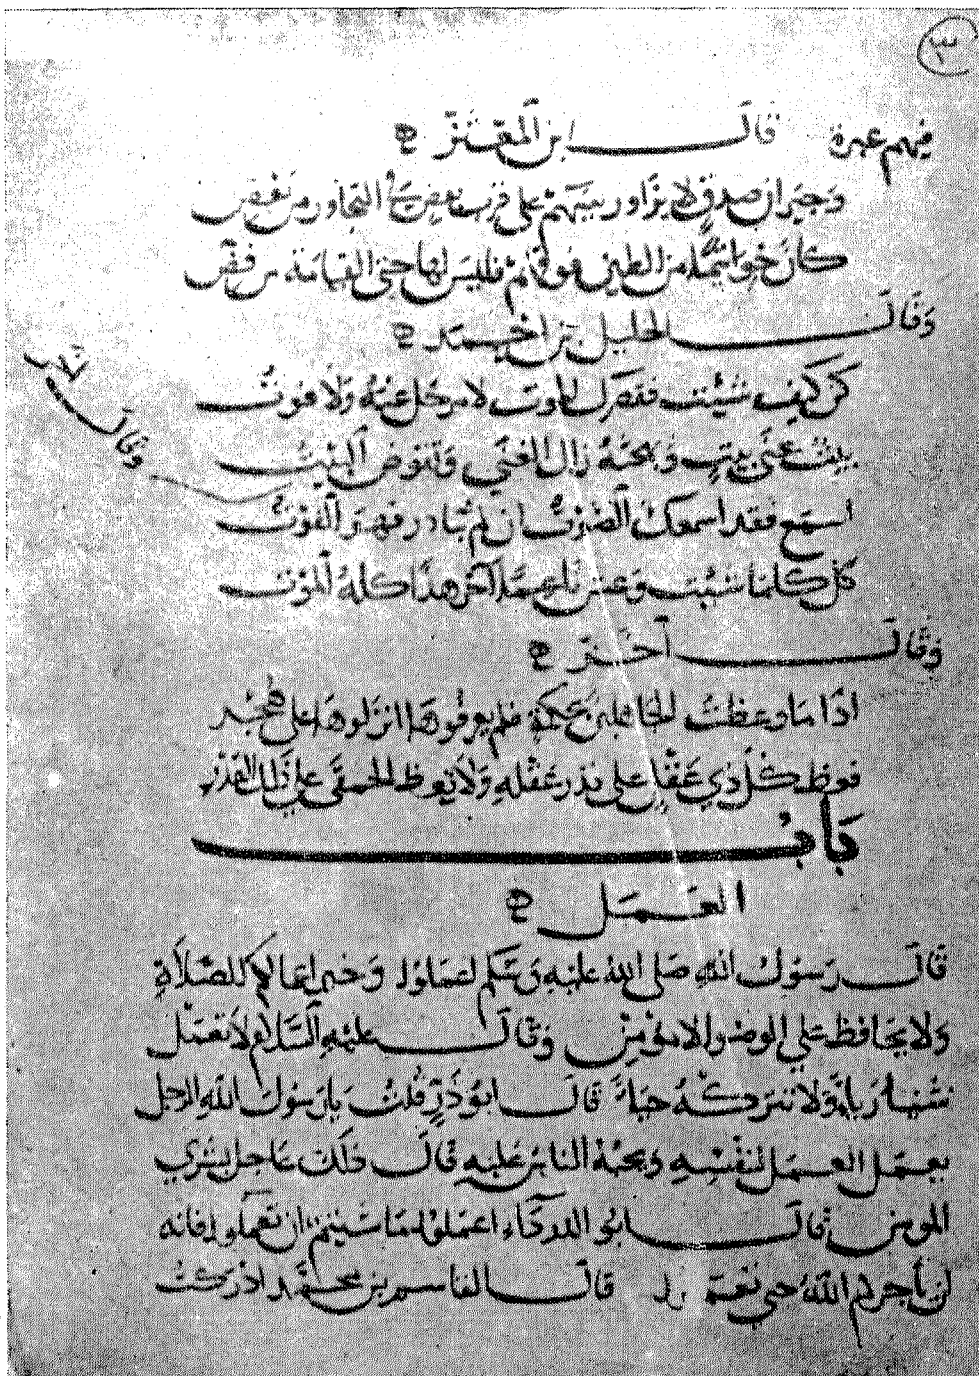 ٣
فيهم عبرة قال ابن المعتز
وجيران صدق لا تزاور بينهم على قرب بعض في التجاور من بعض
كأن خواتيما من الطين فوقهم فليس لها حتى القيامة من فض
وقال الخليل بن احمد
كن كيف شئت فقصرك الموت لا مزحل عنه ولا فوت
بينا غنى بيت وبهجته زال الغنى وتقوض البيت
وقال آخر
اسمع فقد اسمعك الصوت ان لم تبادر فهو الفوت
كل كلما شئت وعش ناعما آخر هذا كله الموت
وقال آخر
اذا ما وعظت الجاهلين بحكمة فلم يعرفوها انزلوها على هجر
فعظ كل ذي عقل على قدر عقله ولا تعظ الحمقى على ذلك القدر
باب
العمل
قال رسول الله صلى الله عليه وسلم اعملوا وخير اعمالكم الصلاة
ولا يحافظ على الوضو الا مؤمن وقال عليه السلام لا تعمل
شيئا رياء ولا تتركه حياء قال ابو ذر قلت يا رسول الله الرجل
يعمل العمل لنفسه ويحبه الناس عليه قال ذلك عاجل بشرى
المومن قال ابو الدرداء اعملوا ما شيتم ان تعملوا فانه
لن يأجركم الله حتى تعملوا قال القاسم بن محمد ادركت